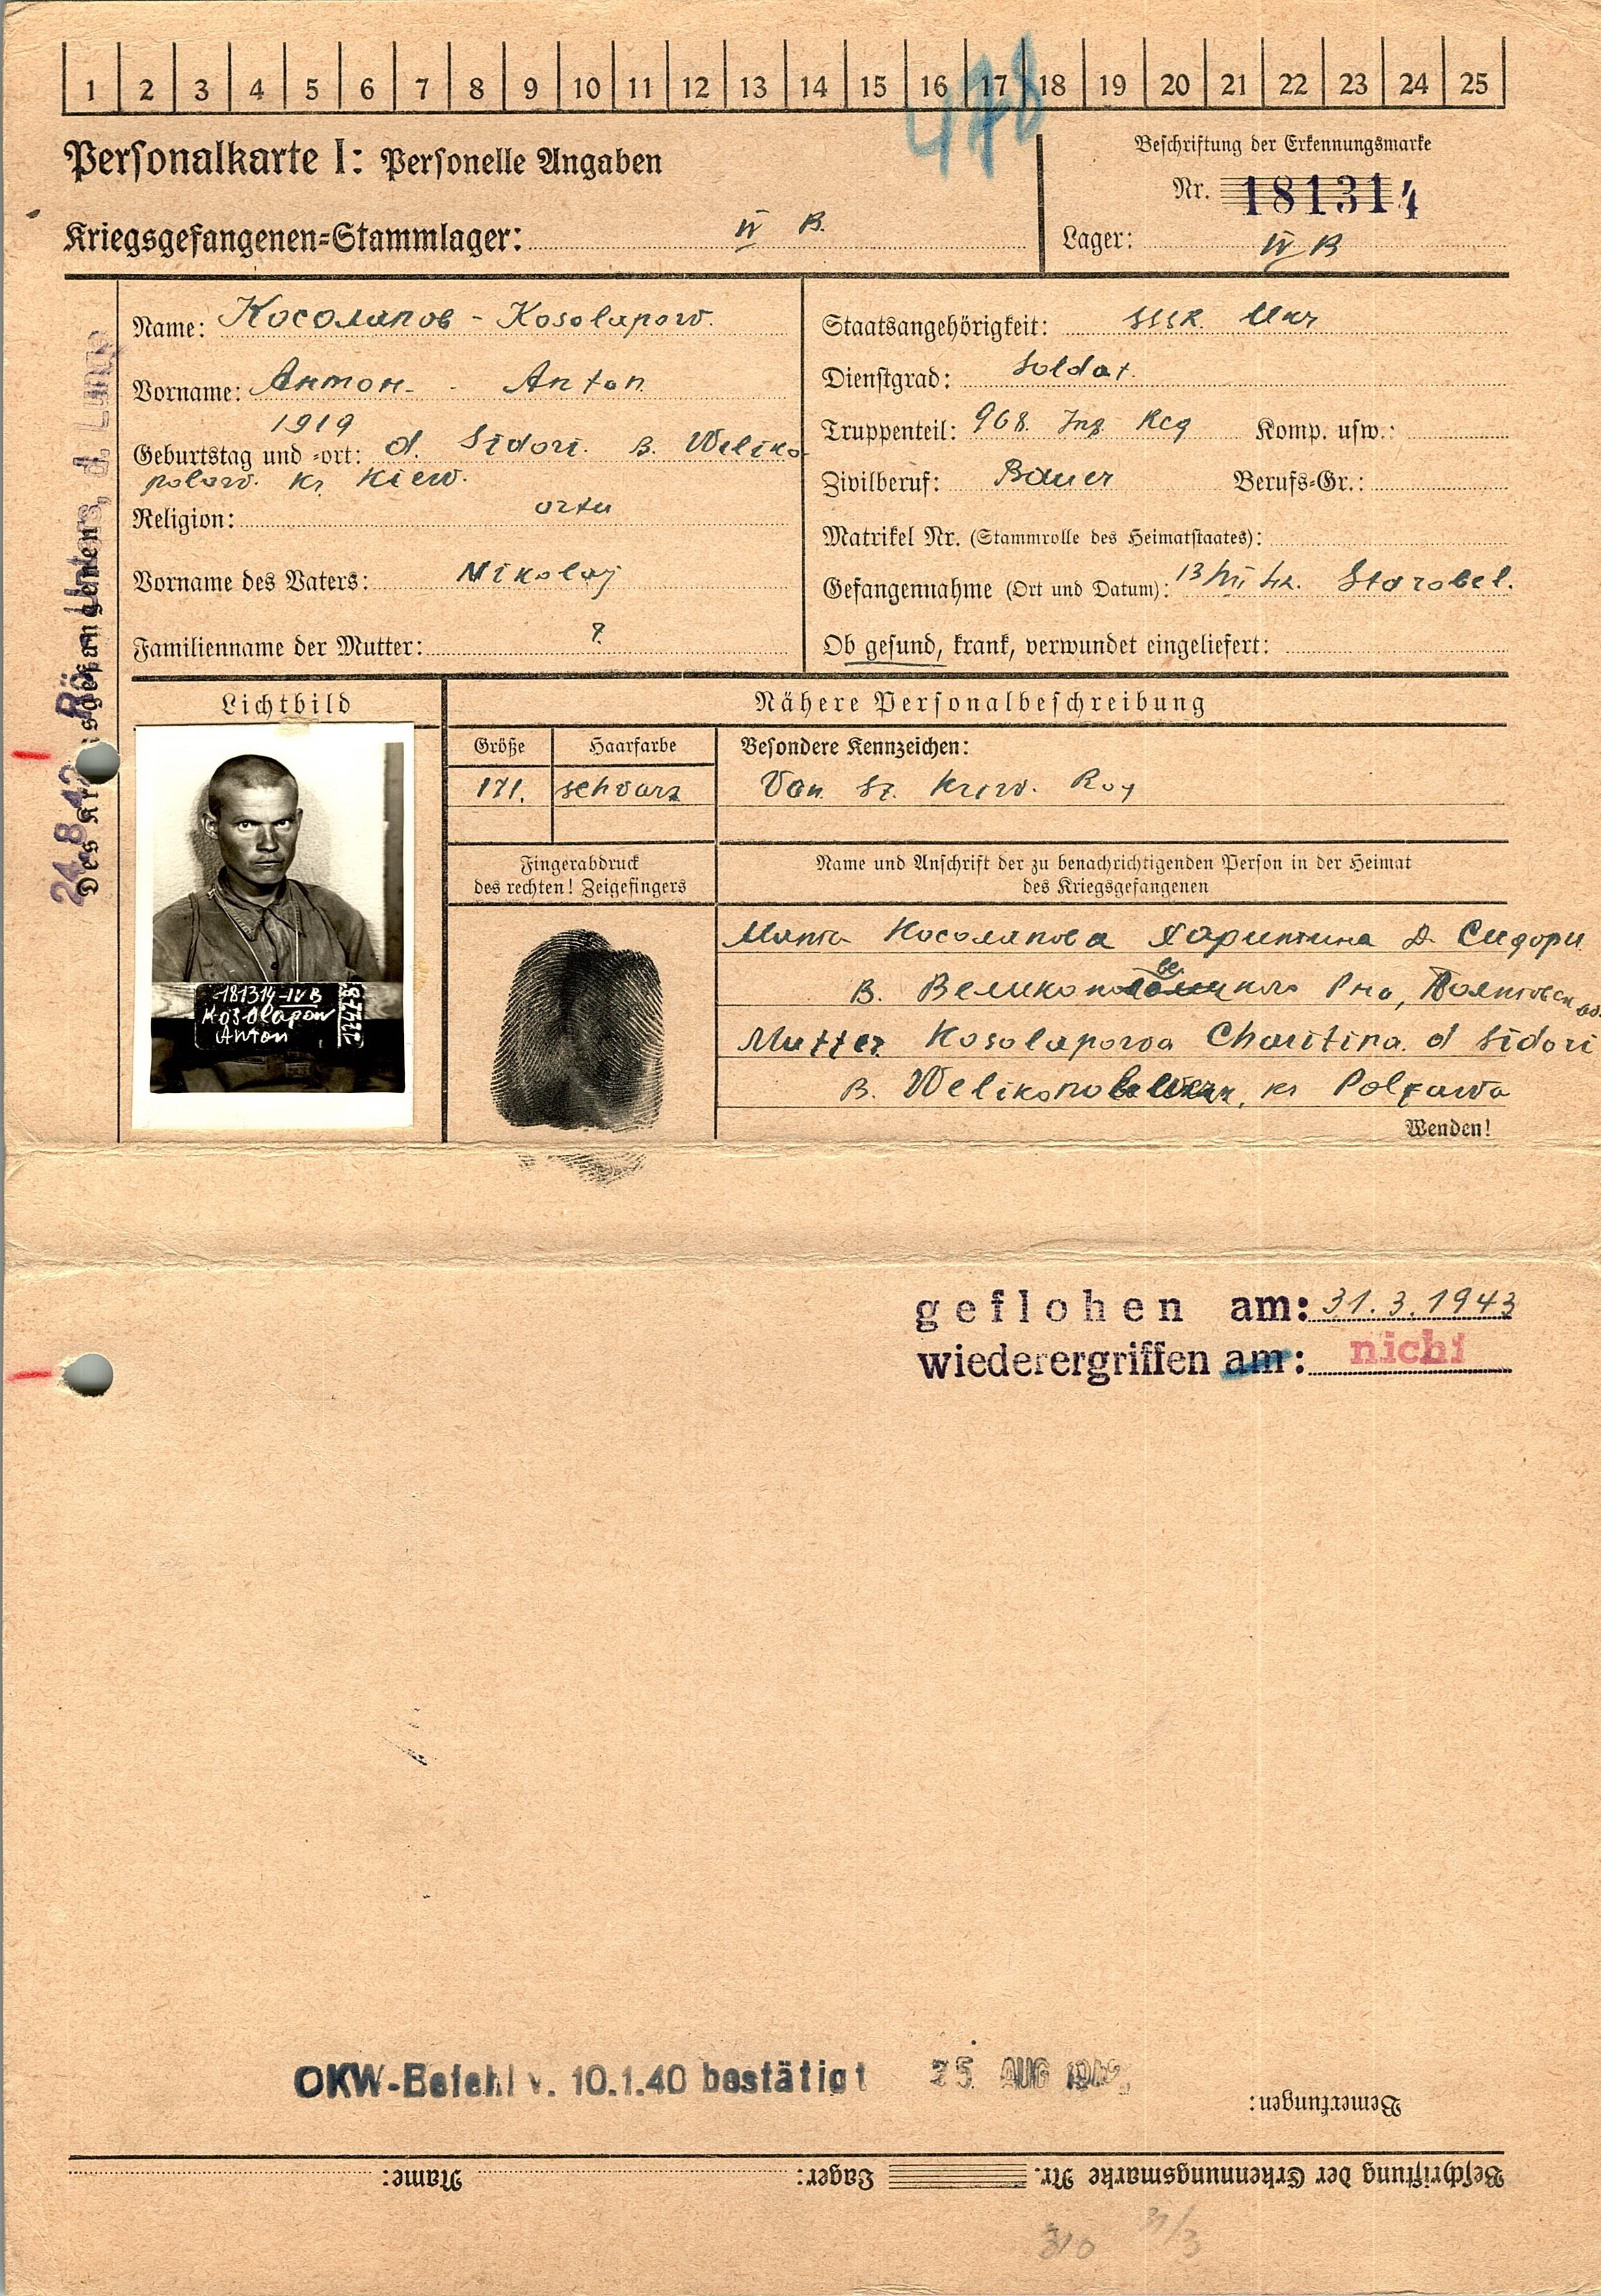 1 2 3 4 5 6 7 8 9 10 11 12 13 14 15 16 17 18 19 20 21 22 23 24 25
478
Personalkarte I: Personelle Angaben
Beschriftung der Erkennungsmarke
Nr. 181314
Kriegsgefangenen-Stammlager: IV B.
Lager: IV B
Name: Косолапов - Kosolapow.
Vorname: Антон - Anton
1919
Geburtstag und -ort: d. Sidori. B. Weliko
polow. Kr. Kiew.
Religion: ortu
Vorname des Vaters: Nikolaj
Familienname der Mutter: ?
Staatsangehörigkeit: SSSR. Ukr
Dienstgrad: Soldat.
Truppenteil: 968. Inf Reg Komp. usw.:
Zivilberuf: Bauer Berufs-Gr.:
Matrikel Nr. (Stammrolle des Heimatstaates):
Gefangennahme (Ort und Datum): 13/VII 42. Starobel.
Ob gesund, krank, verwundet eingeliefert:
24.8.42
Des Kriegsgefangenen
Lichtbild
181314-IV B
Kosolapow
Anton
Nähere Personalbeschreibung
Größe Haarfarbe Besondere Kennzeichen:
171. schwarz
Fingerabdruck
des rechten! Zeigefingers
Name und Anschrift der zu benachrichtigenden Person in der Heimat
des Kriegsgefangenen
Косолапова Харитина Д. Сидори
В.
Mutter Kosolapowa Charitina. d Sidori
B. kr Poltawa
Wenden!
geflohen am: 31.3.1943
wiederergriffen am: nicht
OKW-Befehl v. 10.1.40 bestätigt 25 AUG 1942
Bemerkungen:
Beschriftung der Erkennungsmarke Nr. Lager: Name:
310 31/3